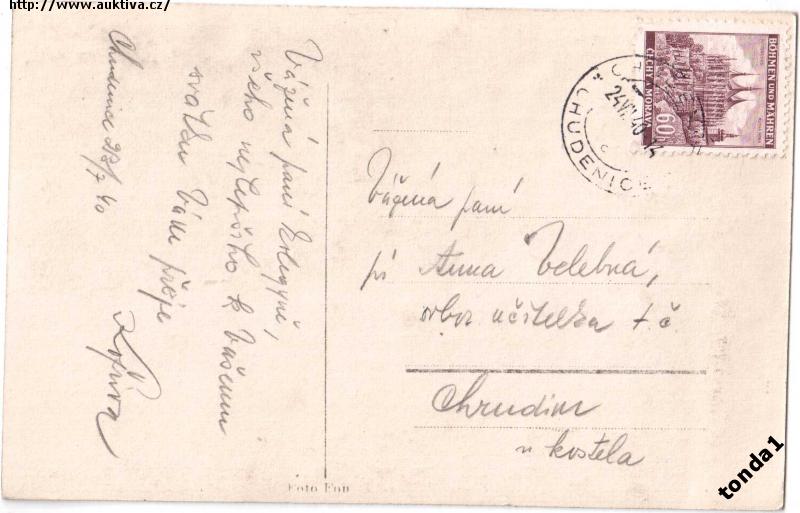 http://www.auktiva.cz/
Chudenice 23/7 40
Vážená paní kolegyně,
všeho nejlepšího k Vašemu
svátku Vám přeje
BÖHMEN UND MÄHREN
ČECHY A MORAVA
60
CHUDENICE
24.VII.40
Vážená paní
pí Anna Velebná,
odbor. učitelka t. č.
Chrudim
u kostela
Foto Fon
tonda1